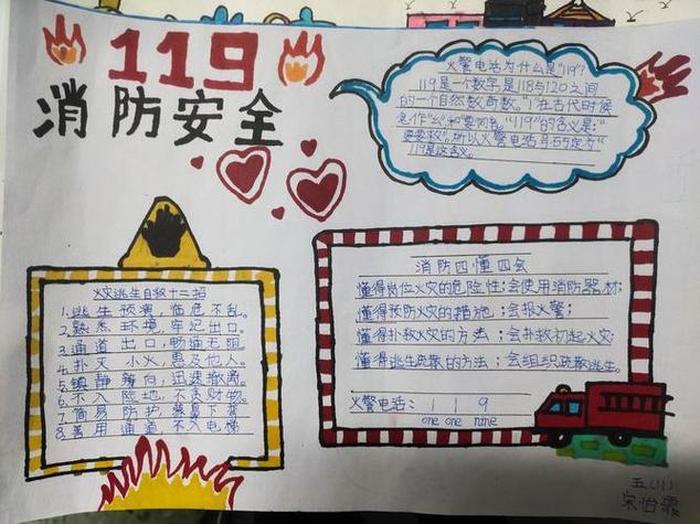 119
消防安全
火警电话为什么是"119"?
119是一个数字,是118与120之间
的一个自然数奇数。"1"在古代时候
119是这含义。
火灾逃生自救十二招
1.逃生预演,临危不乱。
2.熟悉环境,牢记出口。
3.通道出口,畅通无阻。
4.扑灭小火,惠及他人。
5.镇静辨向,迅速撤离。
6.不入险地,不贪财物。
7.简易防护,
8.善用通道,不入电梯
消防四懂四会
懂得岗位火灾的危险性;会使用消防器材;
懂得预防火灾的措施;会报火警;
懂得扑救火灾的方法;会扑救初起火灾;
懂得逃生疏散的方法;会组织疏散逃生。
火警电话:119
one one nine
五(1)
宋怡